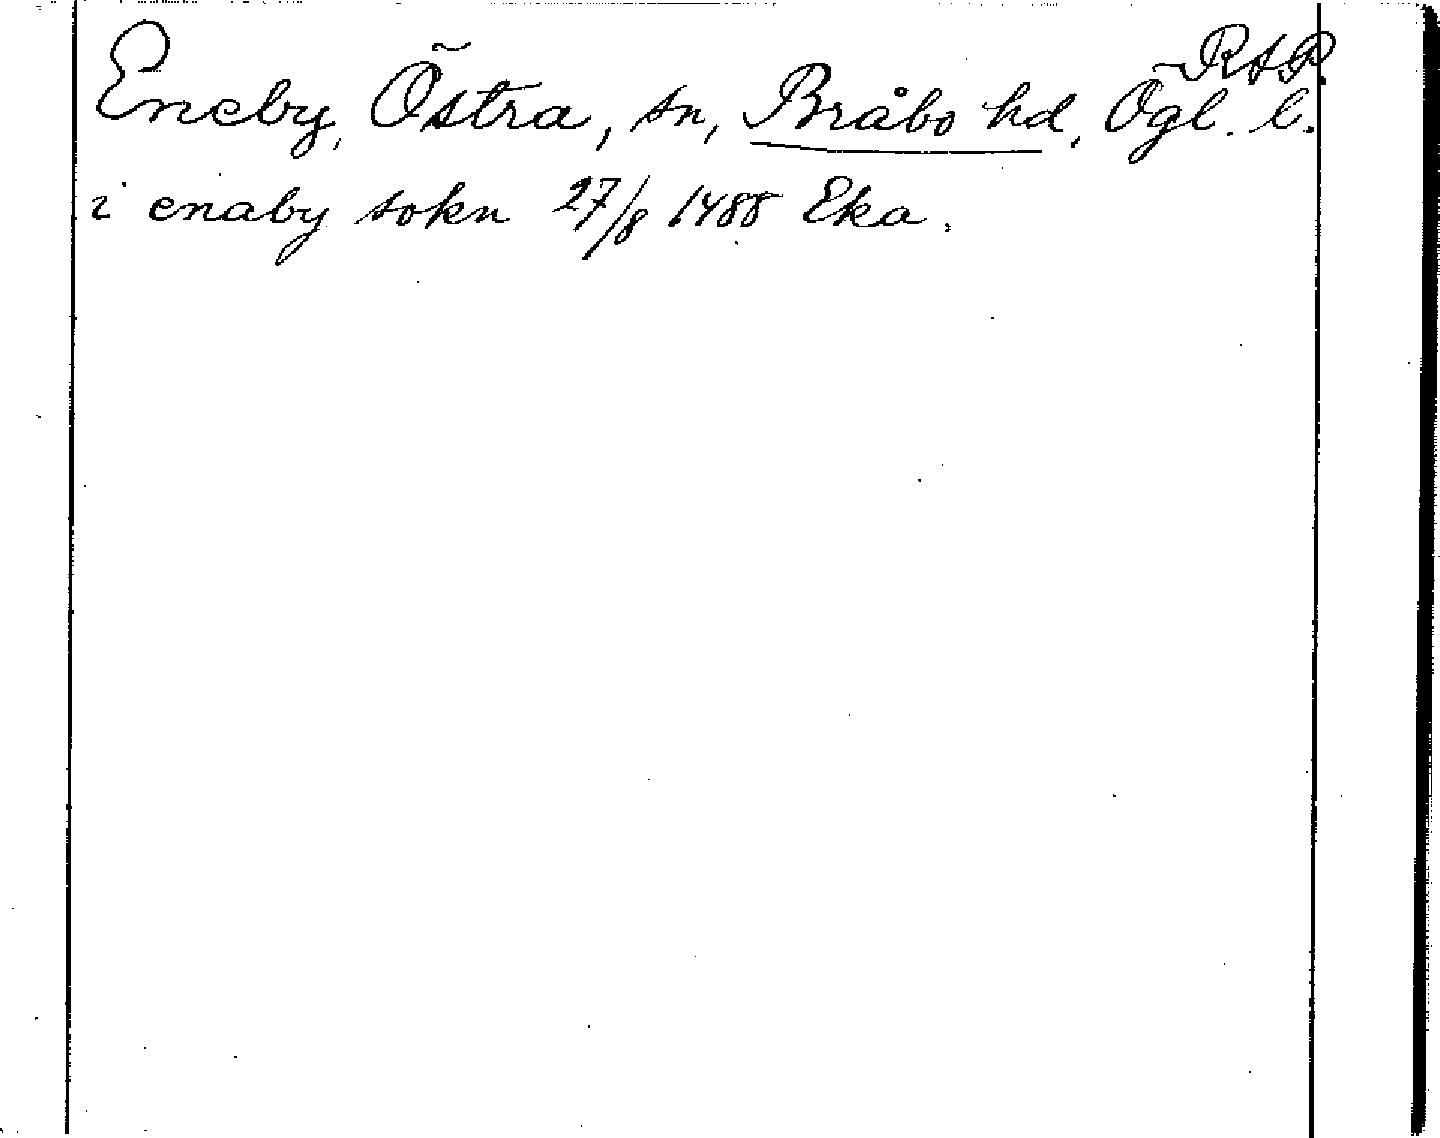 RAP.
Eneby, Östra, sn, Bråbo hd, Ögl. l.
i enaby sokn 27/8 1488 Eka.